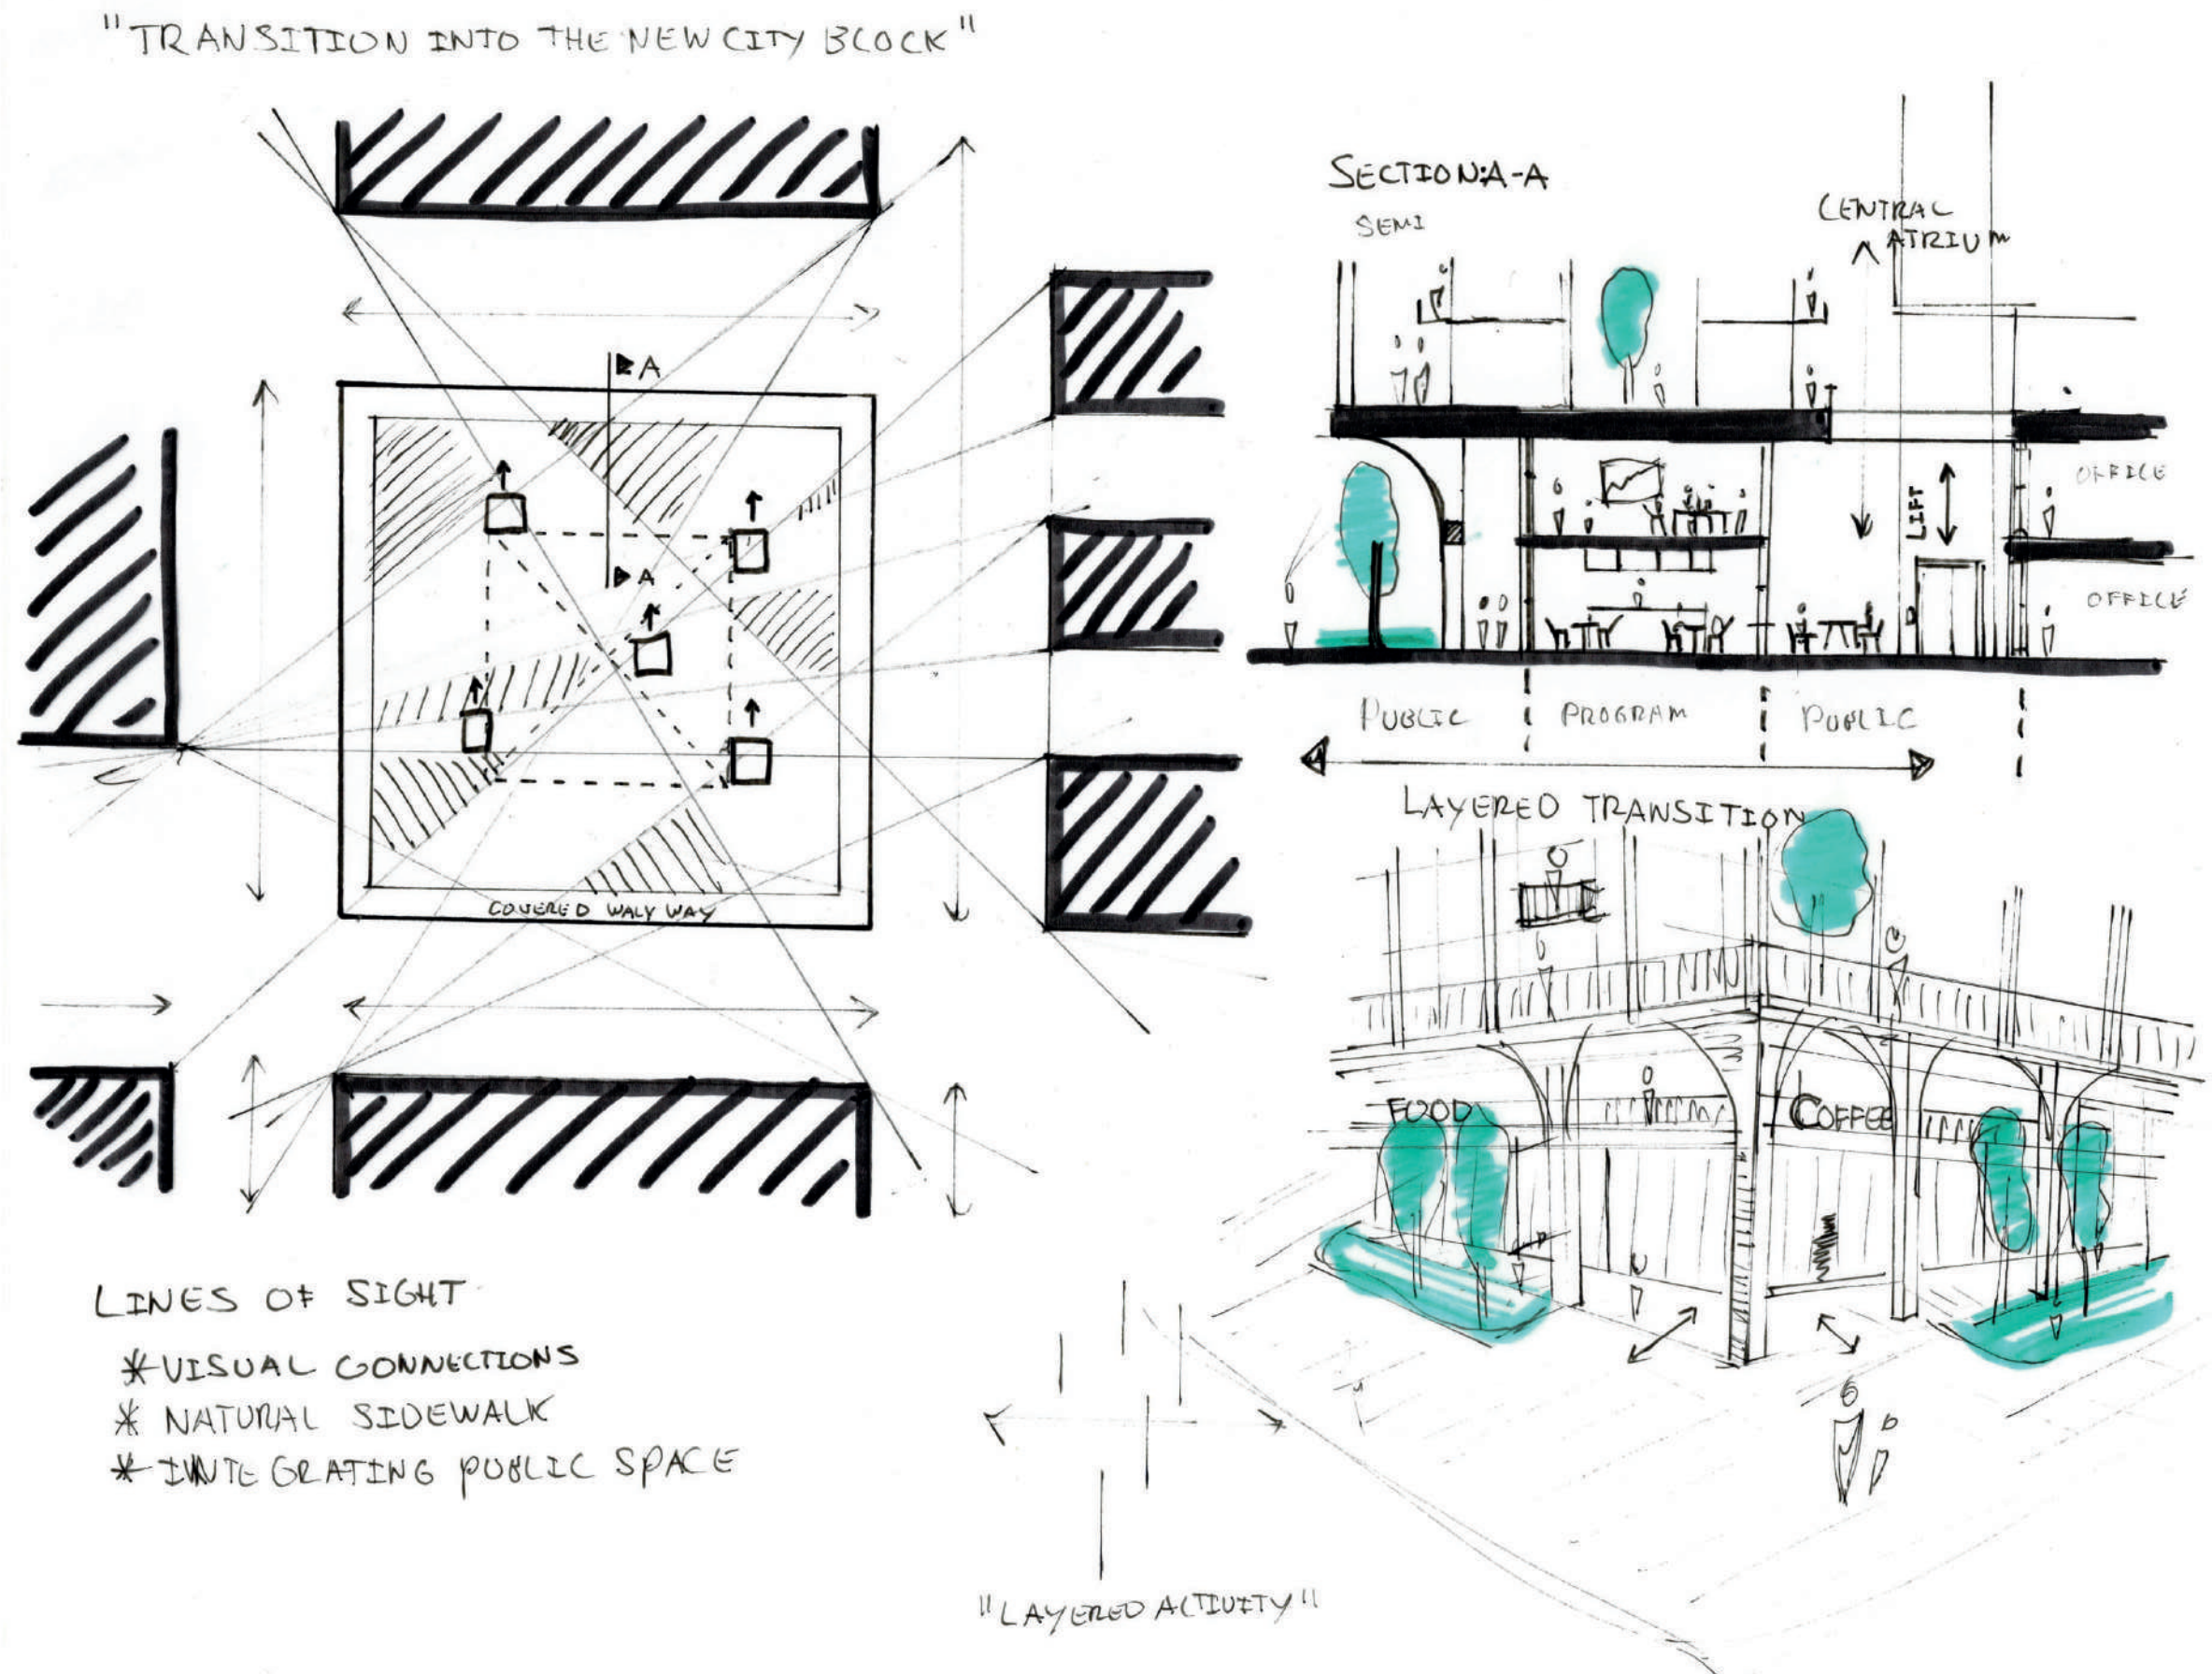 "TRANSITION INTO THE NEW CITY BLOCK"
A
A
COVERED WALYWAY
LINES OF SIGHT
* VISUAL CONNECTIONS
* NATURAL SIDEWALK
* INTEGRATING PUBLIC SPACE
SECTION:A-A
SEMI
CENTRAL
ATRIUM
OFFICE
LIFT
OFFICE
PUBLIC
PROGRAM
PUBLIC
LAYERED TRANSITION
FOOD
COFFEE
"LAYERED ACTIVITY"